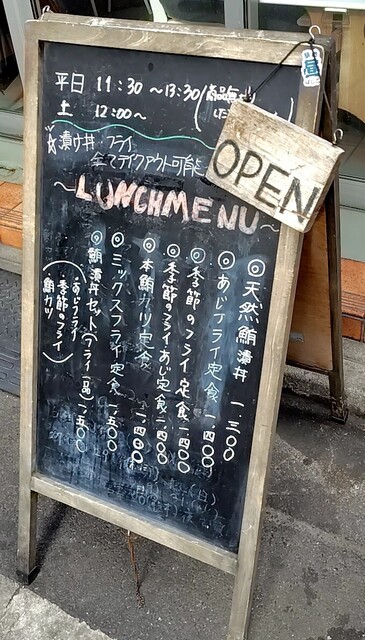 平日 11:30~13:30
土 12:00~
☆漬け丼 フライ
全てテイクアウト可能
OPEN
~LUNCHMENU~
◎天然鮪漬丼 一.三〇〇
◎あじフライ定食 一.四〇〇
◎季節のフライ定食 一.四〇〇
◎季節のフライあじ定食 一.四〇〇
◎本鮪カツ定食 一.四〇〇
◎ミックスフライ定食 一.五〇〇
◎鮪漬丼セット(フライ一品) 一.五〇〇
(あじフライ
季節のフライ
鮪カツ)